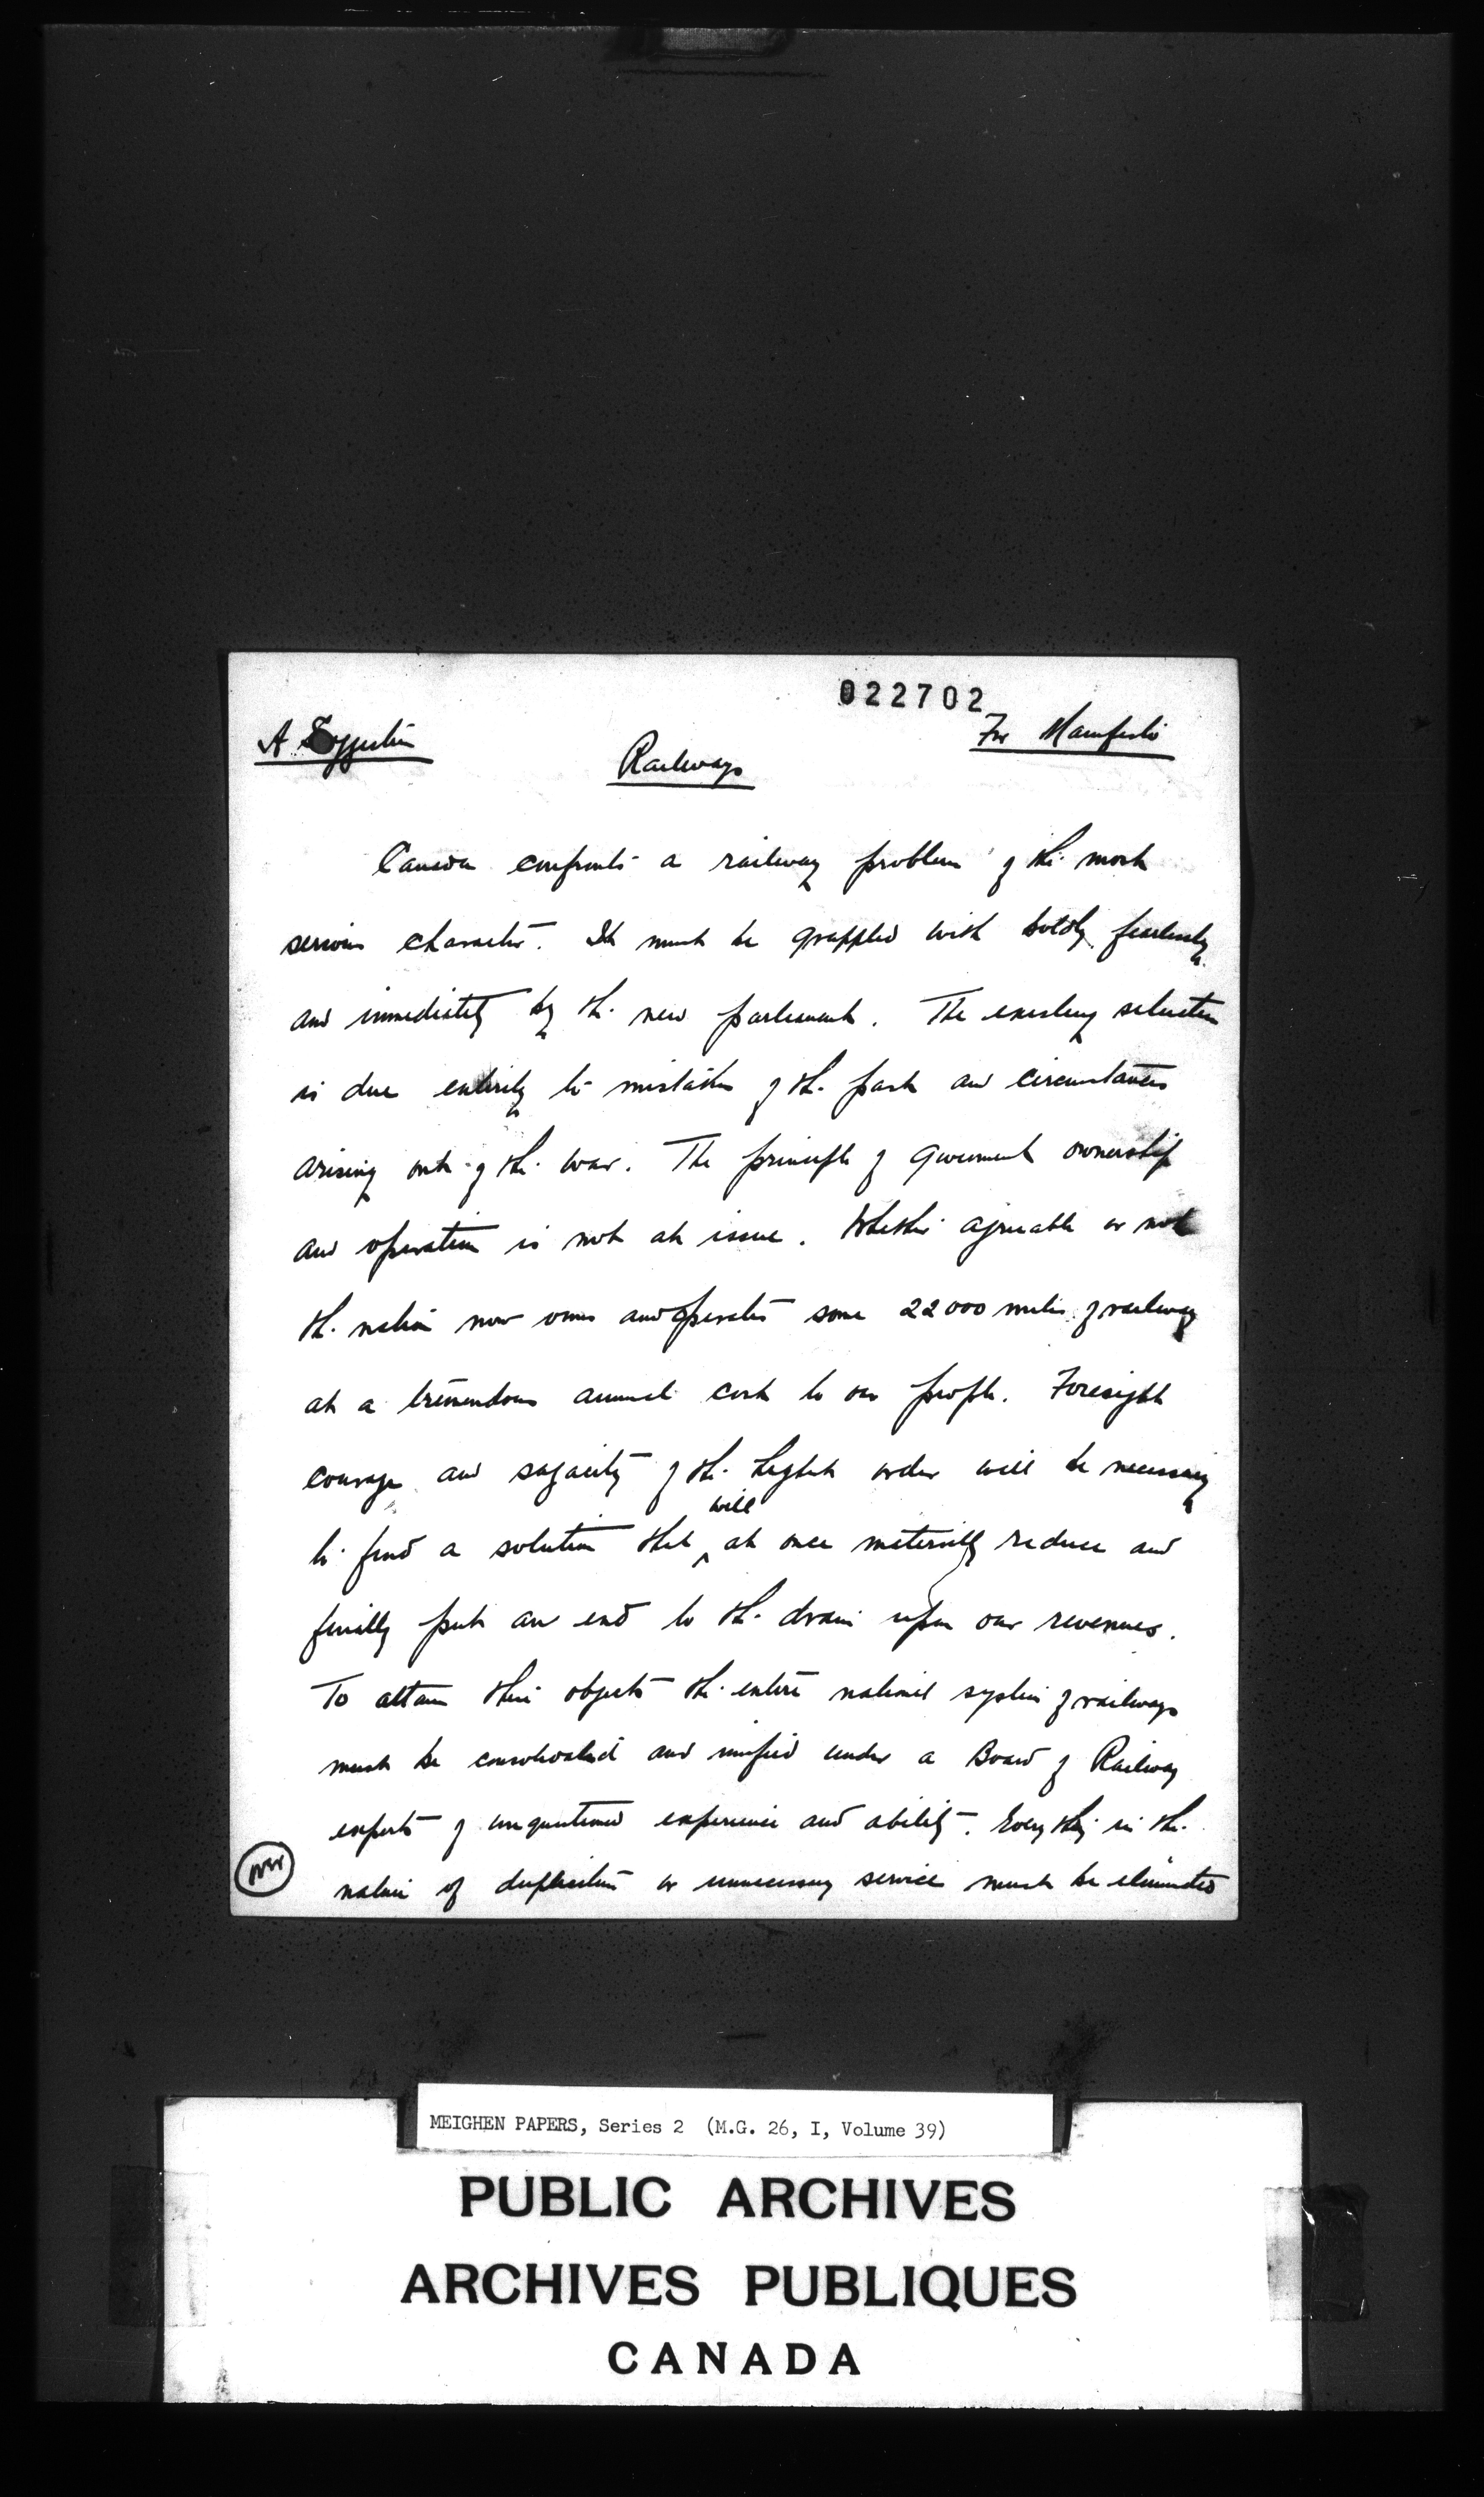 022702
A Suggestion
For Manifesto
Railways
Canada confronts a railway problem of the most
serious character. It must be grappled with boldly, fearlessly
and immediately by the new parliament. The existing situation
is due entirely to mistakes of the past and circumstances
arising out of the war. The principle of government ownership
and operation is not at issue. Whether agreeable or not
the nation now owns and operates some 22000 miles of railway
at a tremendous annual cost to our people. Foresight
courage and sagacity of the highest order will be necessary
will
to find a solution that ^ at once materially reduce and
finally put an end to the drain upon our revenues.
To attain these objects the entire national system of railways
must be consolidated and unified under a Board of Railway
experts of unquestioned experience and ability. Everything in the
nature of duplication or unnecessary service must be eliminated
MEIGHEN PAPERS, Series 2 (M.G. 26, I, Volume 39)
PUBLIC ARCHIVES
ARCHIVES PUBLIQUES
CANADA